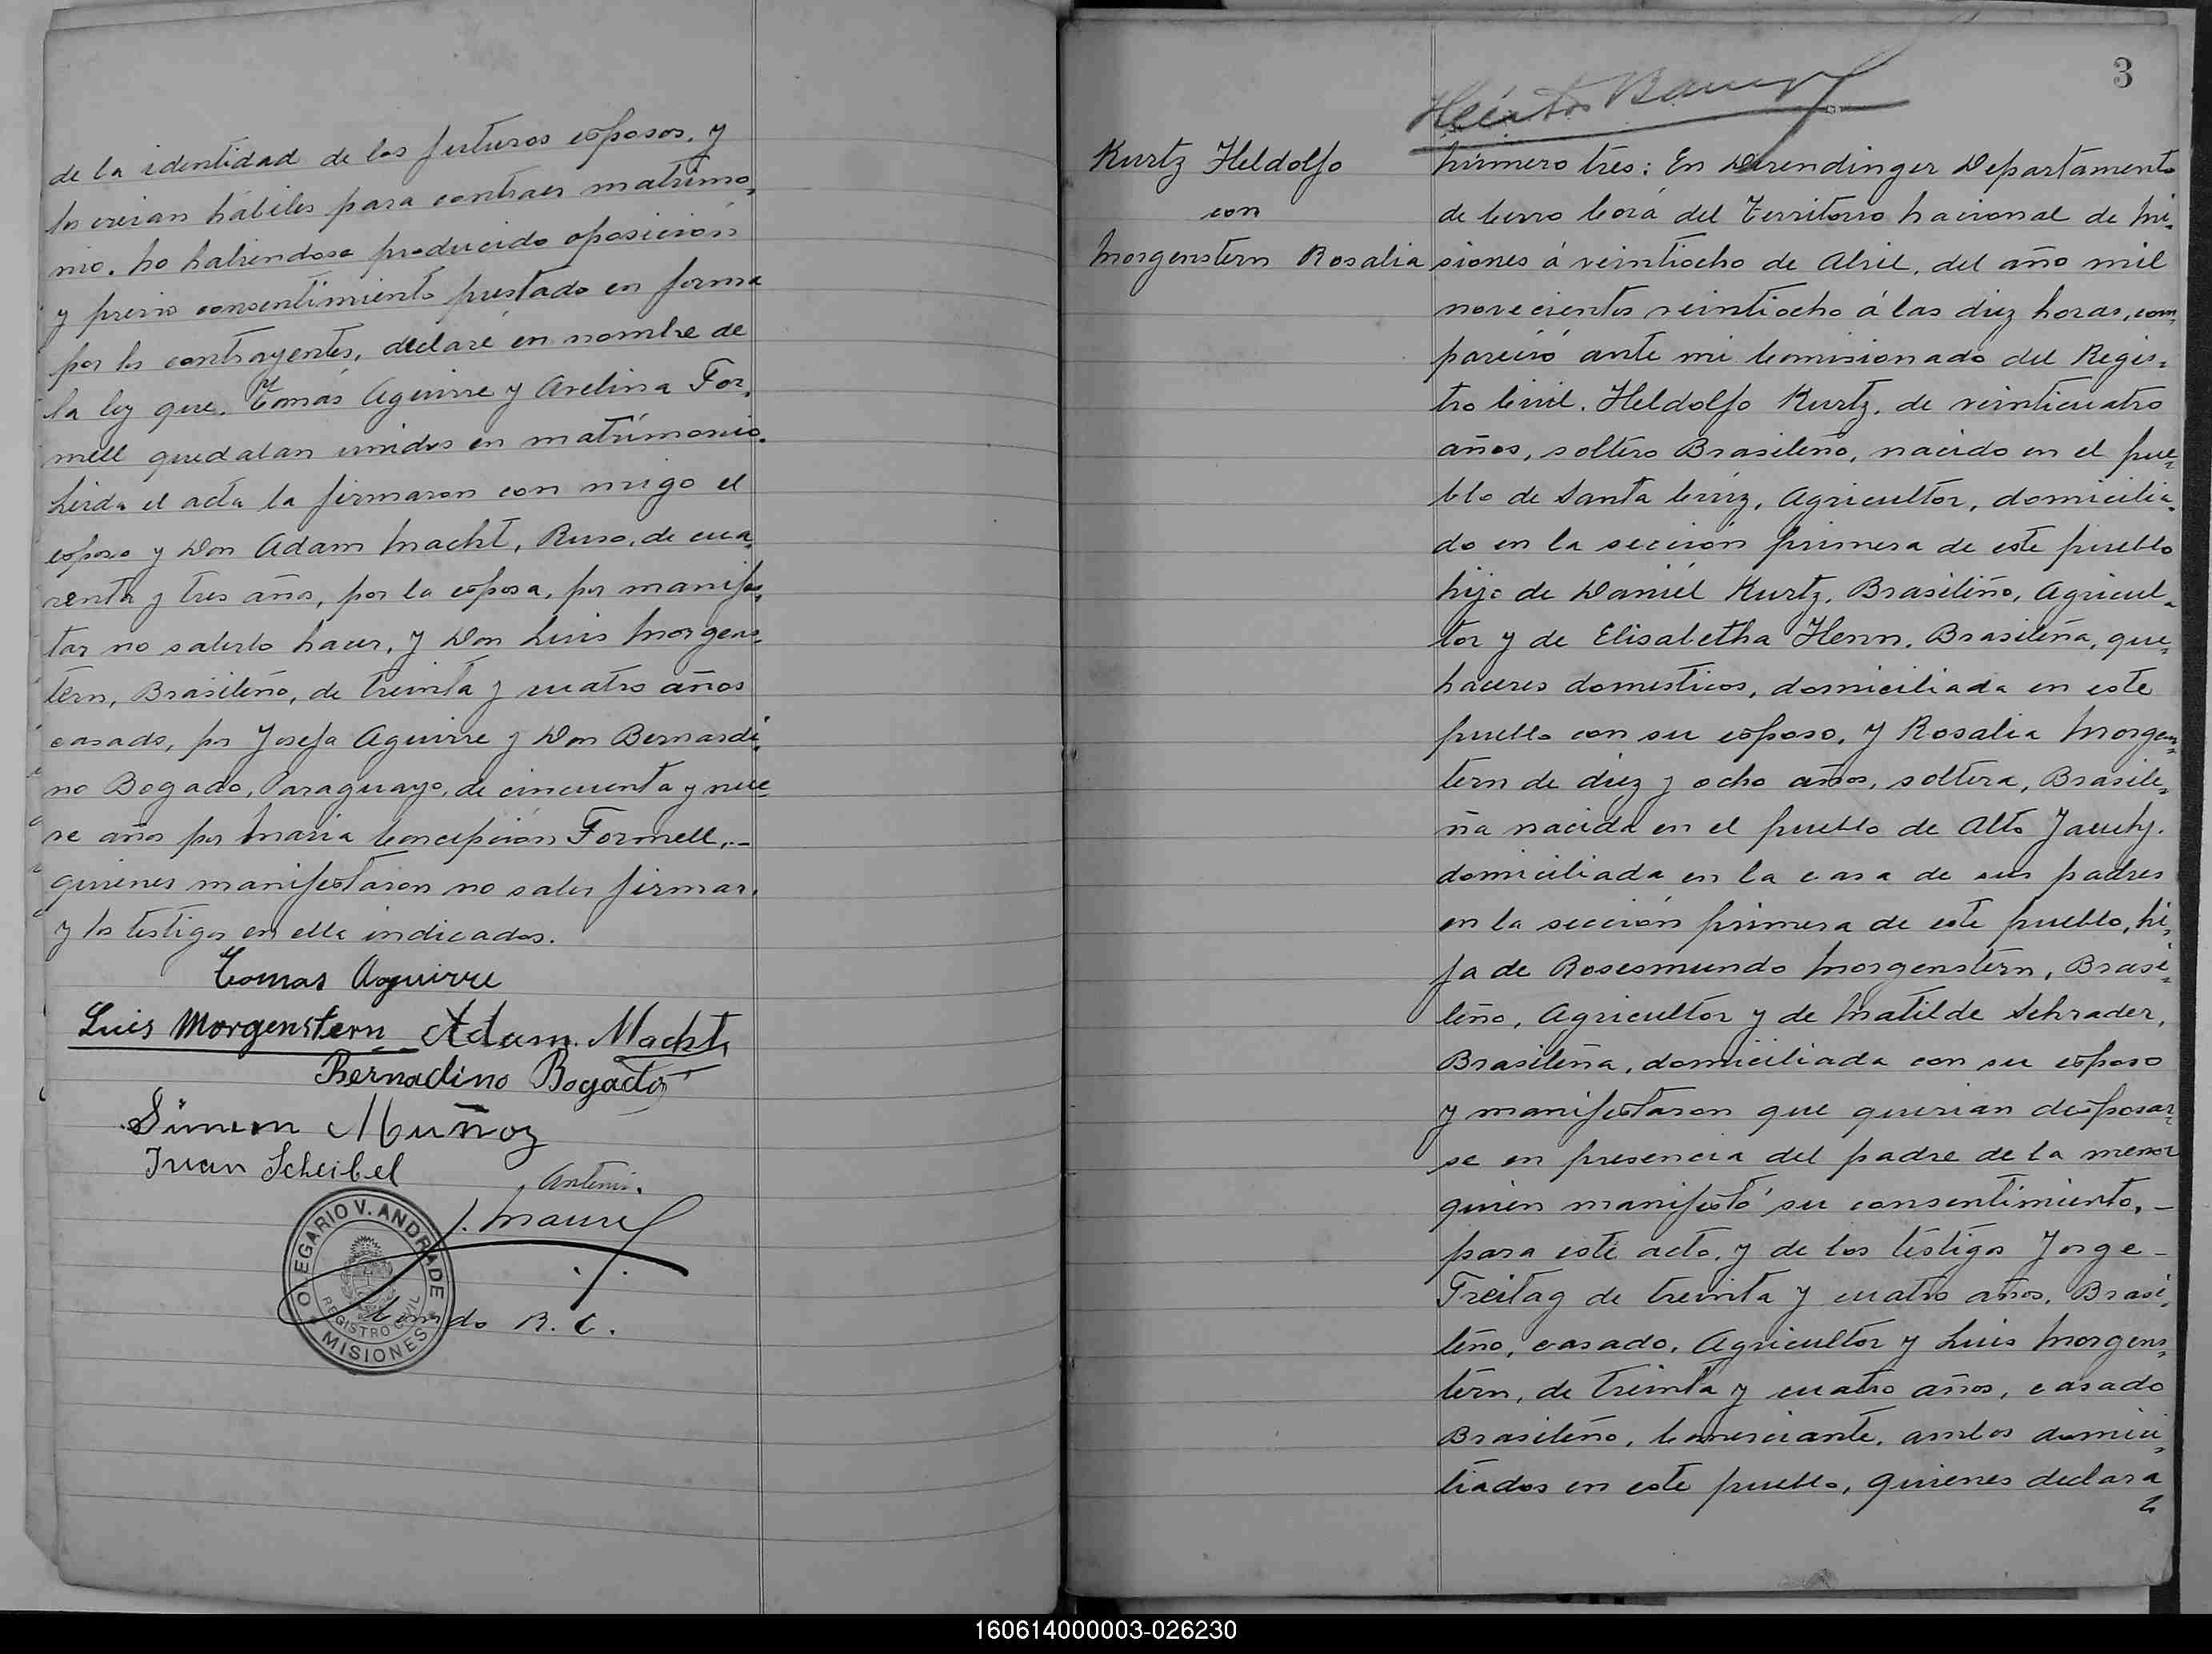 de la identidad de los futuros esposos, y
los creian hábiles para contraer matrimo-
nio. No habiendose producido oposición
y previo consentimiento prestado en forma
por los contrayentes, declaré en nombre de
la ley que, Tomás Aguirre y Avelina For-
mell quedaban unidos en matrimonio.
Leida el acta la firmaron con migo el
esposo y Don Adam Macht, Ruso, de cua-
renta y tres años, por la esposa, por manifes-
tar no saberlo hacer, y Don Luis Morgens-
tern, Brasileño, de treinta y cuatro años
casado, por Josefa Aguirre y Don Bernardi-
no Bogado, Paraguayo, de cincuenta y nue-
ve años por Maria Concepción Formell,.-
quienes manifestaron no saber firmar,
y los testigos en ella indicados.
Tomas Aguirre
Luis Morgenstern Adam. Macht,
Bernadino Bogado
Simeon Muñoz
Juan Scheibel
Antemi.
J. Maurel
OLEGARIO V. ANDRADE
REGISTRO CIVIL
MISIONES
R. C.
3
Kurtz Heldolfo
con
Morgenstern Rosalia
Número tres: En Derendinger Departamento
de Cerro Corá del Territorio Nacional de Mi-
siones á veintiocho de Abril, del año mil
novecientos veintiocho á las diez horas, com-
pareció ante mi Comisionado del Regis-
tro Civil. Heldolfo Kurtz, de veinticuatro
años, soltero Brasileño, nacido en el pue-
blo de Santa Cruz, Agricultor, domicilia-
do en la sección primera de este pueblo
hijo de Daniel Kurtz, Brasileño, Agricul-
tor y de Elisabetha Henn, Brasileña, que-
haceres domesticos, domiciliada en este
pueblo con su esposo, y Rosalia Morgens-
tern de diez y ocho años, soltera, Brasile-
ña nacida en el pueblo de Alto Jacuhy.
domiciliada en la casa de sus padres
en la sección primera de este pueblo, hi-
ja de Rosesmundo Morgenstern, Brasi-
leño, Agricultor y de Matilde Schrader,
Brasileña, domiciliada con su esposo
y manifestaron que querian desposar-
se en presencia del padre de la menor
quien manifestó su consentimiento, -
para este acto, y de los testigos Jorge -
Freitag de treinta y cuatro años, Brasi-
leño, casado, Agricultor y Luis Morgens-
tern, de treinta y cuatro años, casado
Brasileño, Comerciante, ambos domici-
liados en este pueblo, quienes declara
160614000003-026230